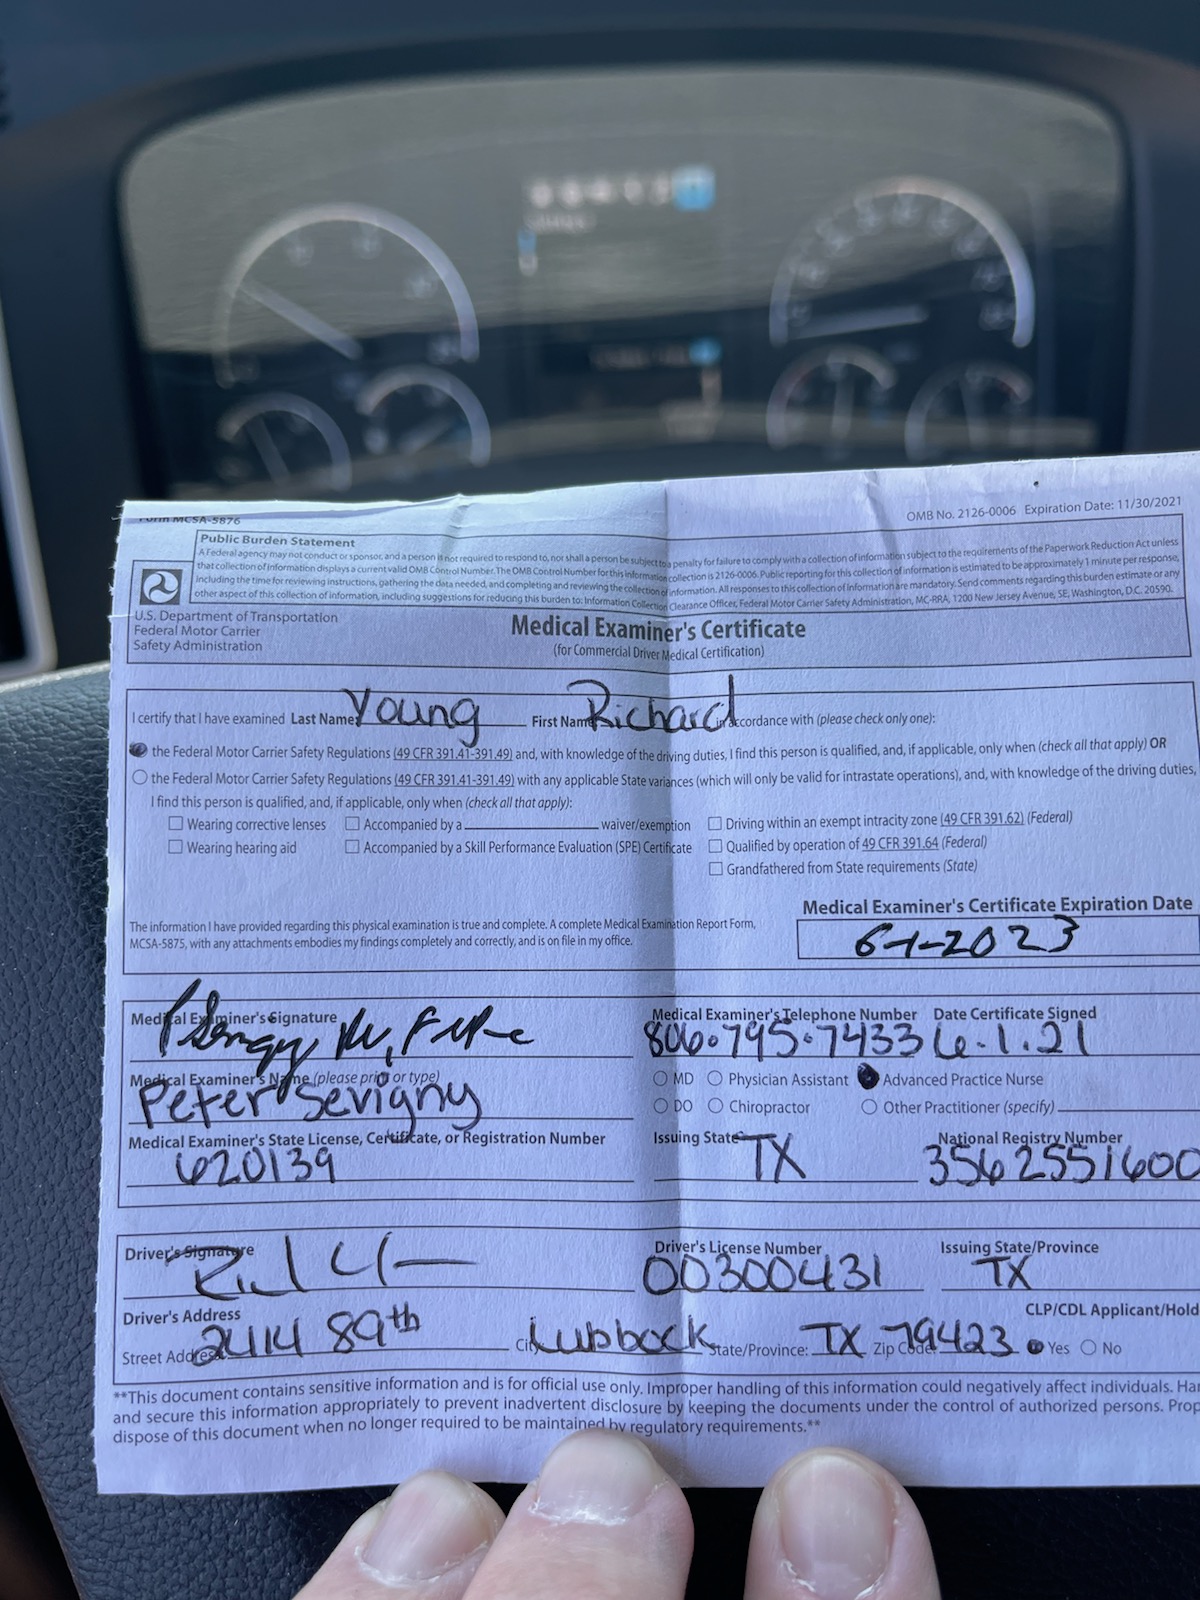 Form MCSA-5876
OMB No. 2126-0006 Expiration Date: 11/30/2021
Public Burden Statement
A Federal agency may not conduct or sponsor, and a person is not required to respond to, nor shall a person be subject to a penalty for failure to comply with a collection of information subject to the requirements of the Paperwork Reduction Act unless
that collection of information displays a current valid OMB Control Number. The OMB Control Number for this information collection is 2126-0006. Public reporting for this collection of information is estimated to be approximately 1 minute per response,
including the time for reviewing instructions, gathering the data needed, and completing and reviewing the collection of information. All responses to this collection of information are mandatory. Send comments regarding this burden estimate or any
other aspect of this collection of information, including suggestions for reducing this burden to: Information Collection Clearance Officer, Federal Motor Carrier Safety Administration, MC-RRA, 1200 New Jersey Avenue, SE, Washington, D.C. 20590.
U.S. Department of Transportation
Federal Motor Carrier
Safety Administration
Medical Examiner's Certificate
(for Commercial Driver Medical Certification)
I certify that I have examined Last Name: Young First Name: Richard in accordance with (please check only one):
the Federal Motor Carrier Safety Regulations (49 CFR 391.41-391.49) and, with knowledge of the driving duties, I find this person is qualified, and, if applicable, only when (check all that apply) OR
the Federal Motor Carrier Safety Regulations (49 CFR 391.41-391.49) with any applicable State variances (which will only be valid for intrastate operations), and, with knowledge of the driving duties,
I find this person is qualified, and, if applicable, only when (check all that apply):
Wearing corrective lenses Accompanied by a waiver/exemption Driving within an exempt intracity zone (49 CFR 391.62) (Federal)
Wearing hearing aid Accompanied by a Skill Performance Evaluation (SPE) Certificate Qualified by operation of 49 CFR 391.64 (Federal)
Grandfathered from State requirements (State)
The information I have provided regarding this physical examination is true and complete. A complete Medical Examination Report Form,
MCSA-5875, with any attachments embodies my findings completely and correctly, and is on file in my office.
Medical Examiner's Certificate Expiration Date
6-1-2023
Medical Examiner's Signature Medical Examiner's Telephone Number Date Certificate Signed
806.795.7433 6.1.21
Medical Examiner's Name (please print or type) MD Physician Assistant Advanced Practice Nurse
Peter Sevigny DO Chiropractor Other Practitioner (specify)
Medical Examiner's State License, Certificate, or Registration Number Issuing State National Registry Number
620139 TX 3562551600
Driver's Signature Driver's License Number Issuing State/Province
00300431 TX
Driver's Address CLP/CDL Applicant/Hold
Street Address: 2414 89th City: Lubbock State/Province: TX Zip Code: 79423 Yes No
**This document contains sensitive information and is for official use only. Improper handling of this information could negatively affect individuals. Ha
and secure this information appropriately to prevent inadvertent disclosure by keeping the documents under the control of authorized persons. Prop
dispose of this document when no longer required to be maintained by regulatory requirements.**